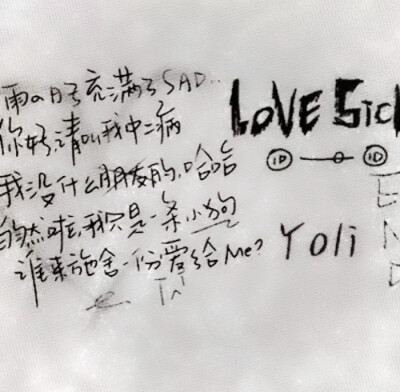 雨の日子充满了SAD...
你好,请叫我中二病
我没什么朋友的,哈哈
自然啦,我只是一条小狗
谁来施舍一份爱给Me?
LOVE SICK
ID ID
Yoli
E
N
D